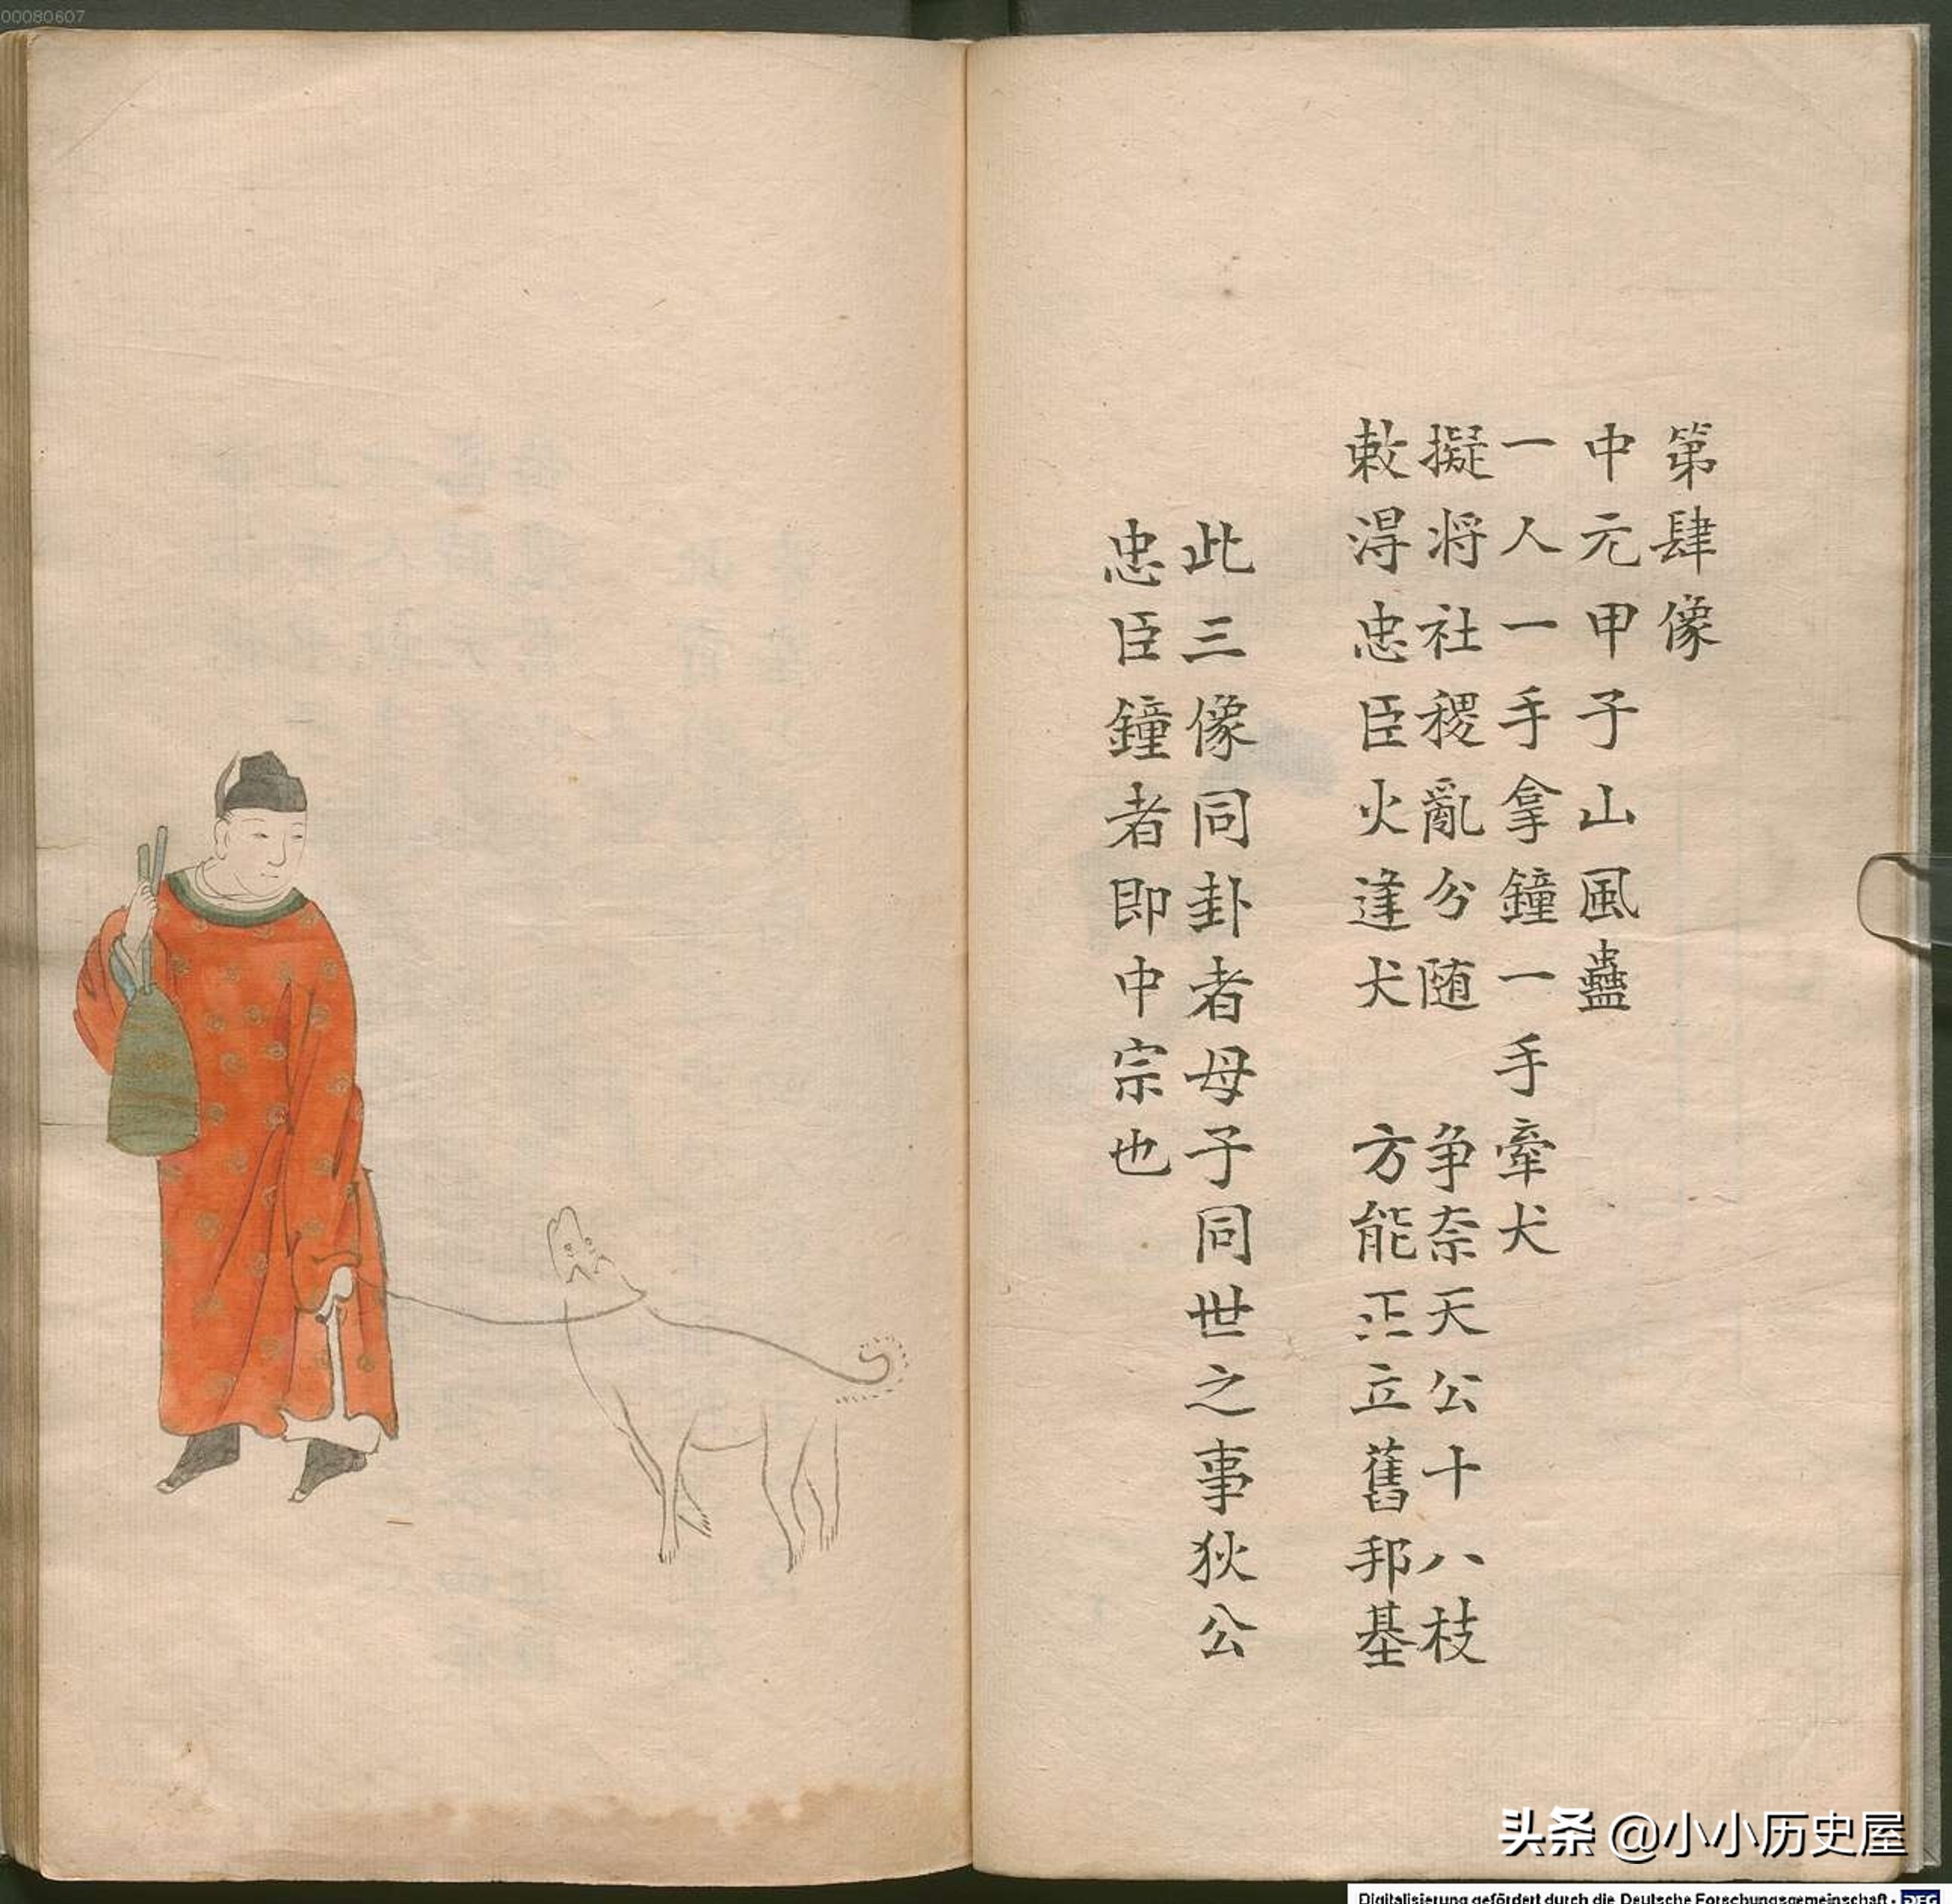 00080607
第肆像
中元甲子山風蠱
一人一手拿鐘一手牽犬
擬將社稷亂分随 争奈天公十八枝
敕淂忠臣火逢犬 方能正立舊邦基
此三像同卦者母子同世之事狄公
忠臣鐘者即中宗也
头条 @小小历史屋
Digitalisierung gefördert durch die Deutsche Forschungsgemeinschaft - DFG